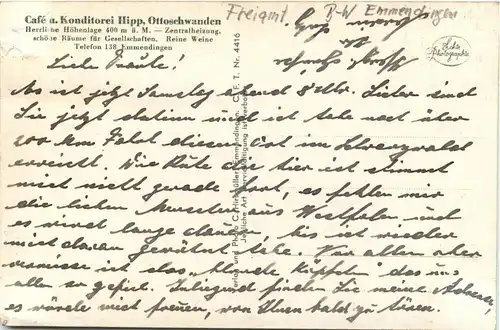 Café u. Konditorei Hipp, Ottoschwanden
Herrliche Höhenlage 400 m ü. M. — Zentralheizung,
schöne Räume für Gesellschaften. Reine Weine
Telefon 138 Emmendingen
Freiamt B-W Emmendingen
Echte Photographie
Liebe
Es ist jetzt Samstag abend 8 Uhr. Leider sind
Sie jetzt nicht ist habe noch über
200 km Fahrt diesen Ort im Schwarzwald
erreicht. Die Ruhe die hier ist stimmt
mich nicht gerade froh, es fehlen mir
die lieben aus Westfalen und
es wird lange dauern, bis ich wieder
mich daran gewöhnt habe. Vor allem aber
vermisse ich das „blonde Köpfchen" das uns
allen so gefiel. Inliegend finden Sie meine Adresse,
es würde mich freuen, von Ihnen bald zu hören.
Verlag und Photo C. F. T. Nr. 4416